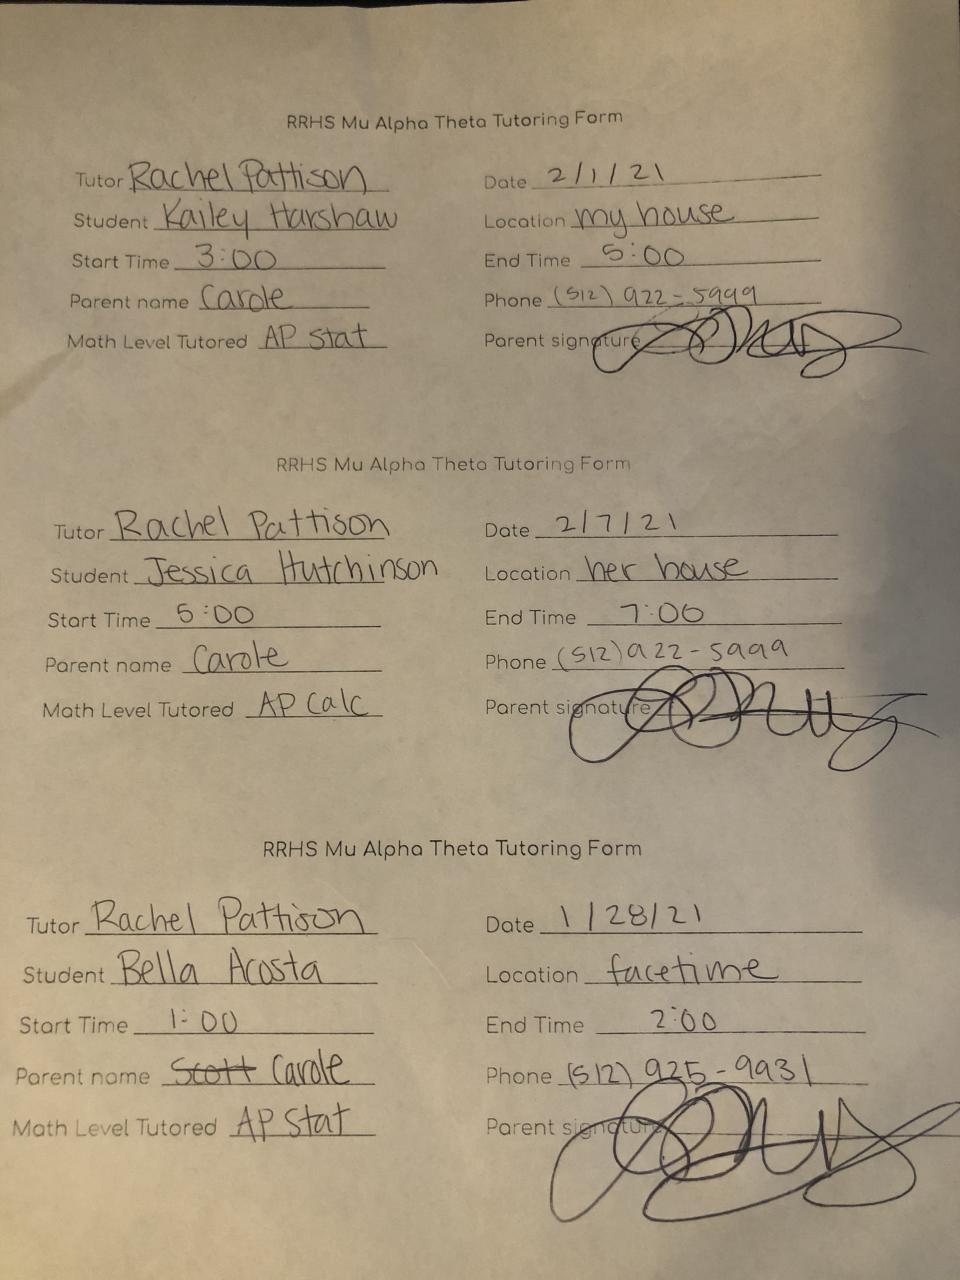 RRHS Mu Alpha Theta Tutoring Form
Tutor Rachel Pattison Date 2/1/21
Student Kailey Harshaw Location my house
Start Time 3:00 End Time 5:00
Parent name Carole Phone (512) 922-5999
Math Level Tutored AP stat Parent signature
RRHS Mu Alpha Theta Tutoring Form
Tutor Rachel Pattison Date 2/7/21
Student Jessica Hutchinson Location her house
Start Time 5:00 End Time 7:00
Parent name Carole Phone (512) 922-5999
Math Level Tutored AP Calc Parent signature
RRHS Mu Alpha Theta Tutoring Form
Tutor Rachel Pattison Date 1/28/21
Student Bella Acosta Location facetime
Start Time 1:00 End Time 2:00
Parent name Scott Carole Phone (512) 925-9931
Math Level Tutored AP Stat Parent signature